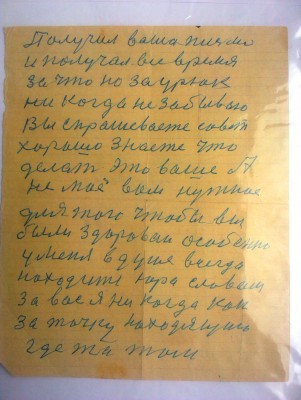 Получил ваша письмо
и получал все время
за что но за урюк
ни когда не забываю
Вы спрашиваете совет
хорошо знаете что
делат это ваше А
не моё вам нужное
для того чтобы вы
были здоровы особенно
у меня в душе всегда
находите пара словам
за вас я ни когда как
за точку находящимо
где та там